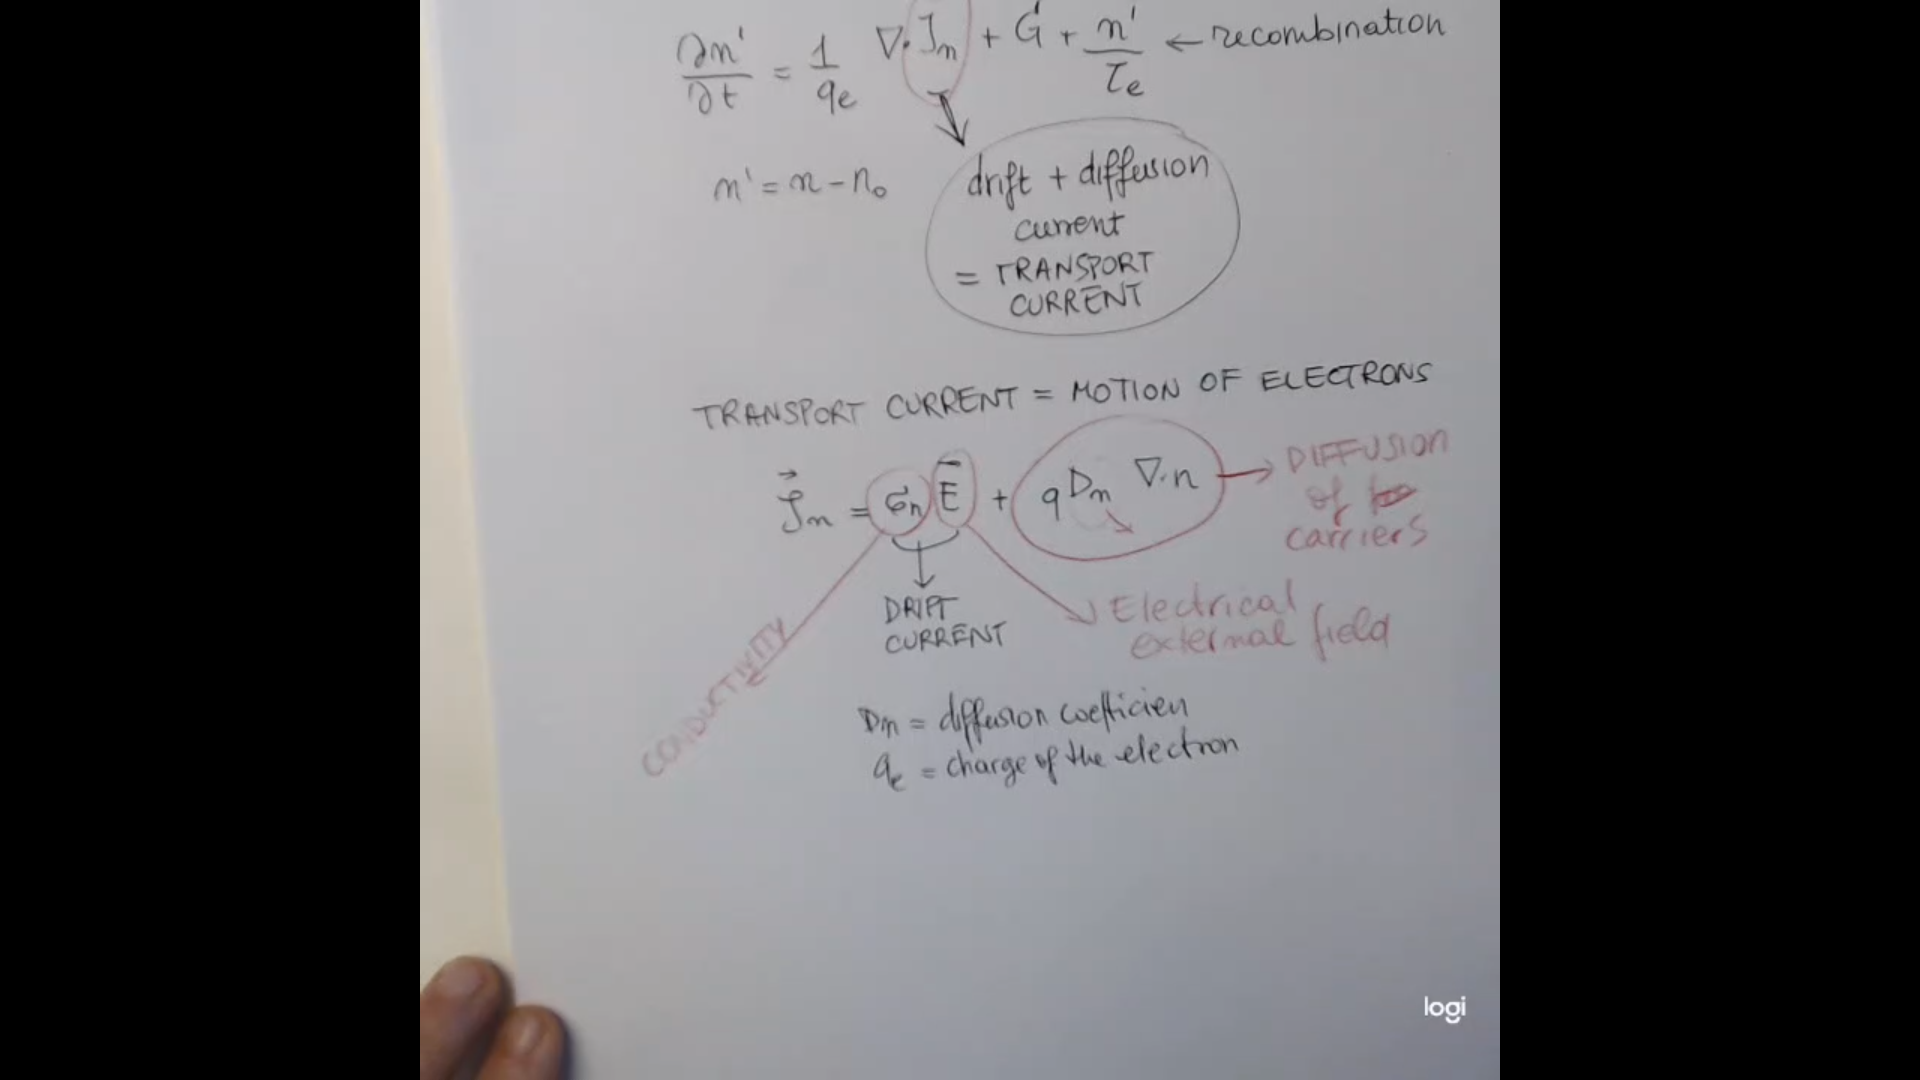 ∂n'/∂t = 1/qe ∇·Jn + G + n'/τe ← recombination
n' = n - n₀
drift + diffusion
current
= TRANSPORT
CURRENT
TRANSPORT CURRENT = MOTION OF ELECTRONS
Jn = σn E + q Dn ∇·n → DIFFUSION
of
carriers
DRIFT
CURRENT
Electrical
external field
CONDUCTIVITY
Dn = diffusion coefficien
qe = charge of the electron
logi